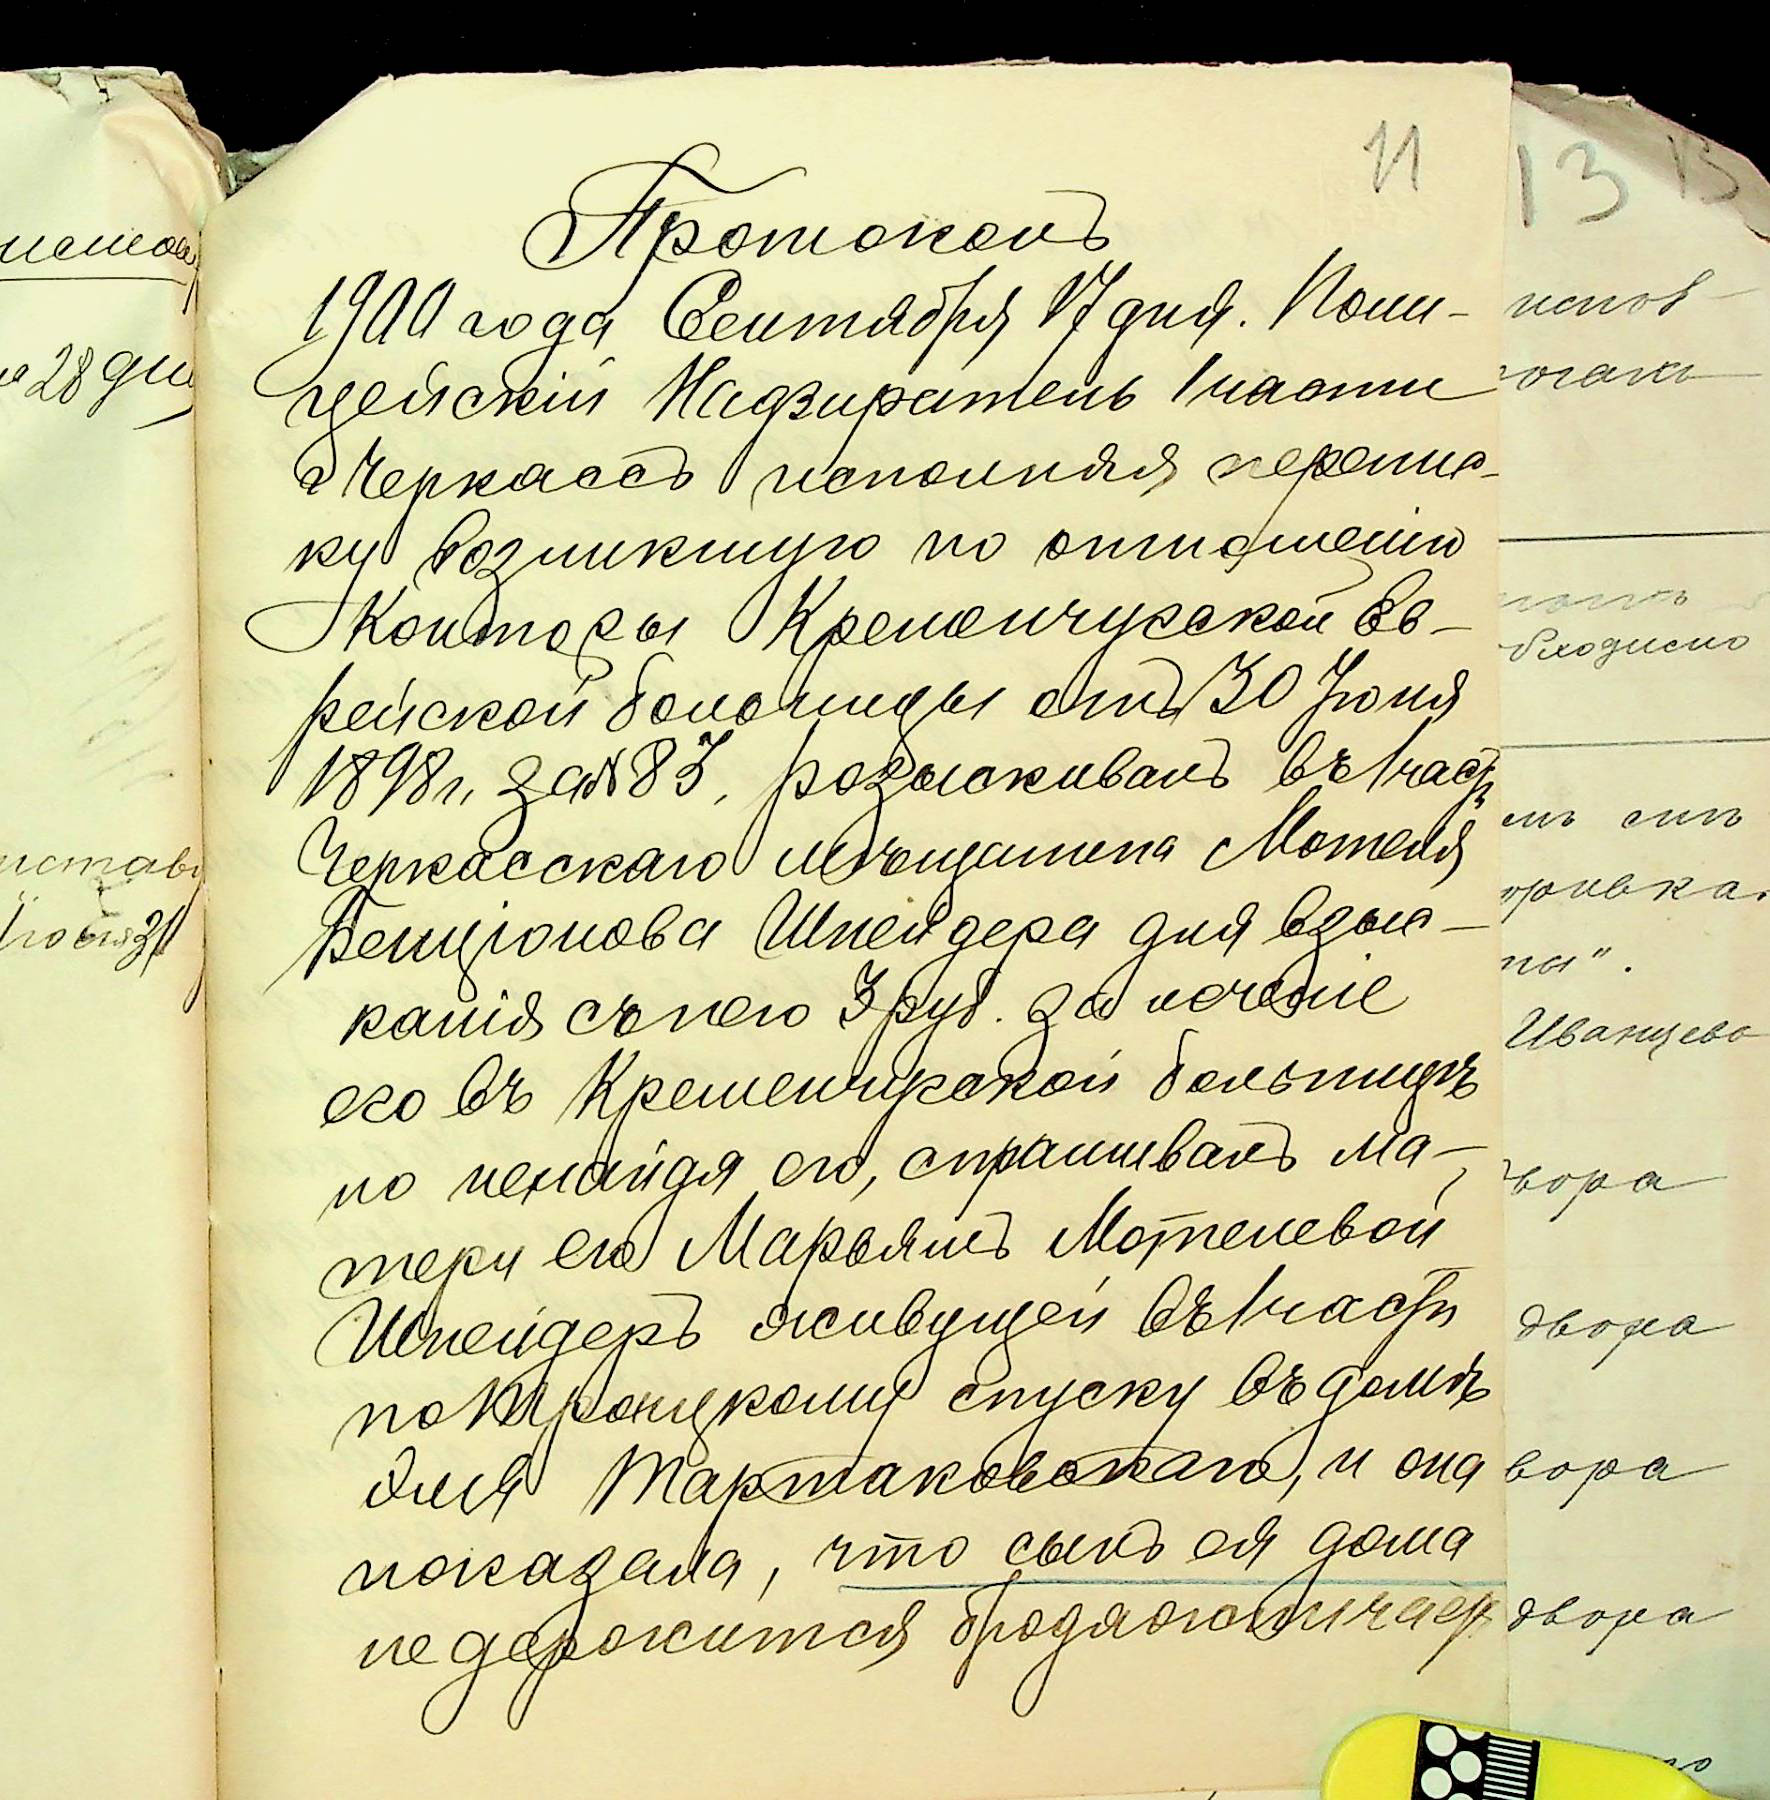 11
Протоколъ
1900 года Сентября 17 дня. Поли-
цейскій Надзиратель 1 части
г Черкассъ исполняя перепис-
ку возникшую по отношенію
Конторы Кременчугской Ев-
рейской больницы отъ 30 Іюня
1898 г. за № 83, розыскивалъ въ 1 части
Черкасскаго мѣщанина Мотеля
Бенціонова Шнейдера для взыс-
канія съ него 3 руб. за леченіе
его въ Кременчугской больницѣ
но ненайдя его, спрашивалъ ма-
тери его Марьямъ Мотелевой
Шнейдеръ живущей въ 1 части
по Троицкому спуску въ домѣ
Тартаковскаго, и она
показала, что сынъ ея дома
не держится бродяжничает
13
28 дня
двора
двора